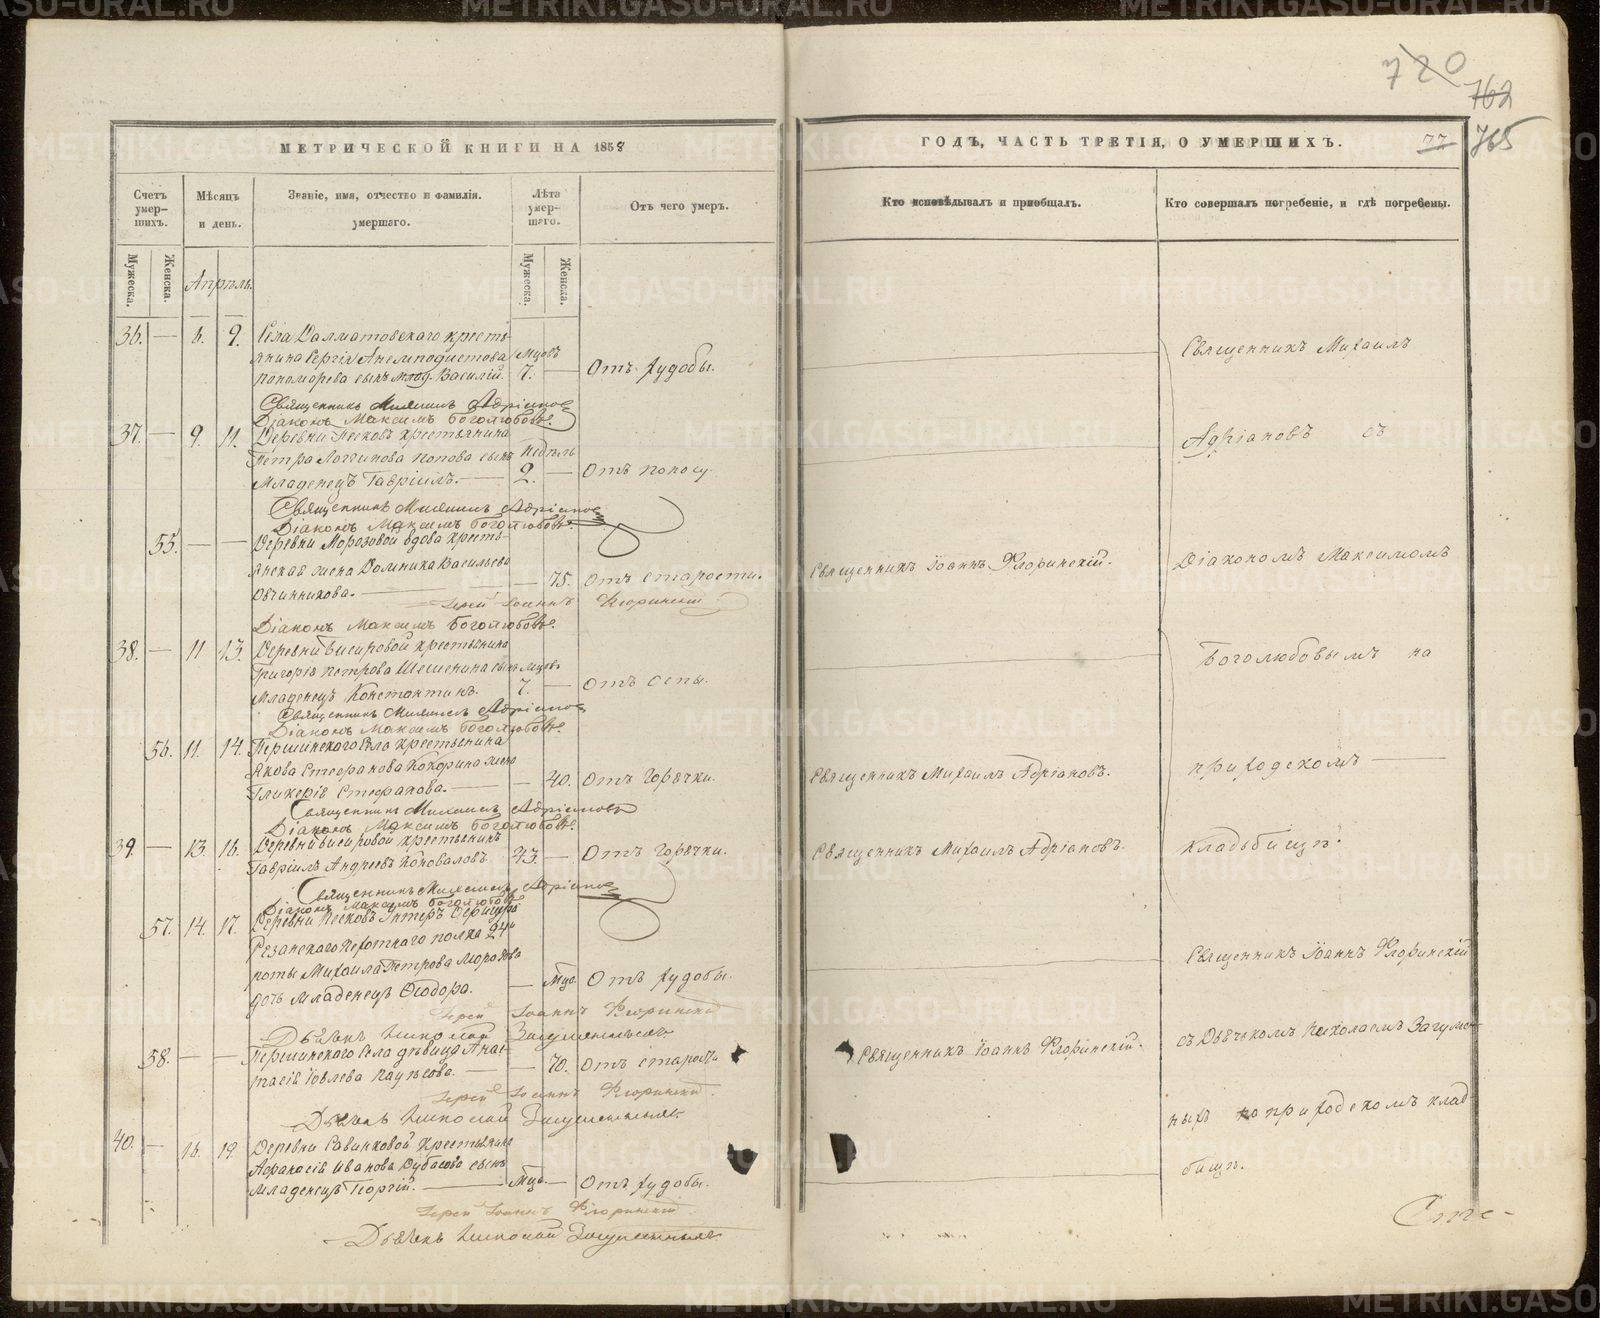 720
762
765
77
МЕТРИЧЕСКОЙ КНИГИ НА 1858
ГОДЪ, ЧАСТЬ ТРЕТІЯ, О УМЕРШИХЪ.
Счетъ умер-шихъ.
Мѣсяцъ и день.
Званіе, имя, отчество и фамилія. умершаго.
Лѣта умер-шаго.
Отъ чего умеръ.
Кто исповѣдывалъ и пріобщалъ.
Кто совершалъ погребеніе, и гдѣ погребены.
Мужеска.
Женска.
Апрѣль.
Мужеска.
Женска.
36. — 6. 9. Села Далматовскаго кресть-
янина Сергія Анемподистова Мцовъ
Пономарева сынъ млад. Василій. 7. — Отъ худобы.
Священникъ Михаилъ Адріановъ
Діаконъ Максимъ Боголюбовъ.
37. — 9. 11. Деревни Песковъ крестьянина
Петра Логгинова Попова сынъ Недѣль
Младенецъ Гавріилъ. — 2. — Отъ поносу.
Священникъ Михаилъ Адріановъ
Діаконъ Максимъ Боголюбовъ.
55. — — Деревни Морозовой вдова кресть-
янская жена Домника Васильева
Овчинникова. — — 75. Отъ старости. Священникъ Іоаннъ Флоринскій.
Іерей Іоаннъ Флоринскій
Діаконъ Максимъ Боголюбовъ.
38. — 11 13. Деревни Бисеровой крестьянина
Григорія Петрова Шешенина сынъ Мцовъ
Младенецъ Константинъ. 7. — Отъ оспы.
Священникъ Михаилъ Адріановъ
Діаконъ Максимъ Боголюбовъ.
56. 11. 14. Першинскаго Села крестьянина
Якова Стефанова Кокорина жена
Гликерія Стефанова. — — 40. Отъ Горячки. Священникъ Михаилъ Адріановъ.
Священникъ Михаилъ Адріановъ
Діаконъ Максимъ Боголюбовъ.
39. — 13. 16. Деревни Бисеровой крестьянинъ
Гавріилъ Андреевъ Коноваловъ. 43. — Отъ Горячки. Священникъ Михаилъ Адріановъ.
Священникъ Михаилъ Адріановъ
Діаконъ Максимъ Боголюбовъ
57. 14. 17. Деревни Песковъ
Резанскаго Пехотнаго полка
роты Михаила Петрова Морозова
дочь Младенецъ Ѳеодора. — Мцо. Отъ худобы.
Іерей Іоаннъ Флоринскій
Дьячекъ Николай Загуменныхъ
58. — — Першинскаго Села дѣвица Анас-
тасія Іовлева — — 70. Отъ старости Священникъ Іоаннъ Флоринскій.
Іерей Іоаннъ Флоринскій.
Дьячекъ Николай Загуменныхъ.
40. — 16. 19. Деревни Савинковой Крестьянина
Афанасія Иванова сынъ
Младенецъ Георгій. — Мцъ — Отъ худобы.
Іерей Іоаннъ Флоринскій.
Дьячекъ Николай Загуменныхъ.
Священникъ Михаилъ
Адріановъ съ
Діакономъ Максимомъ
Боголюбовымъ на
приходскомъ —
кладбищѣ.
Священникъ Іоаннъ Флоринскій
съ Дьячкомъ Николаемъ Загумен-
ныхъ на приходскомъ клад-
бищѣ.
METRIKI.GASO-URAL.RU